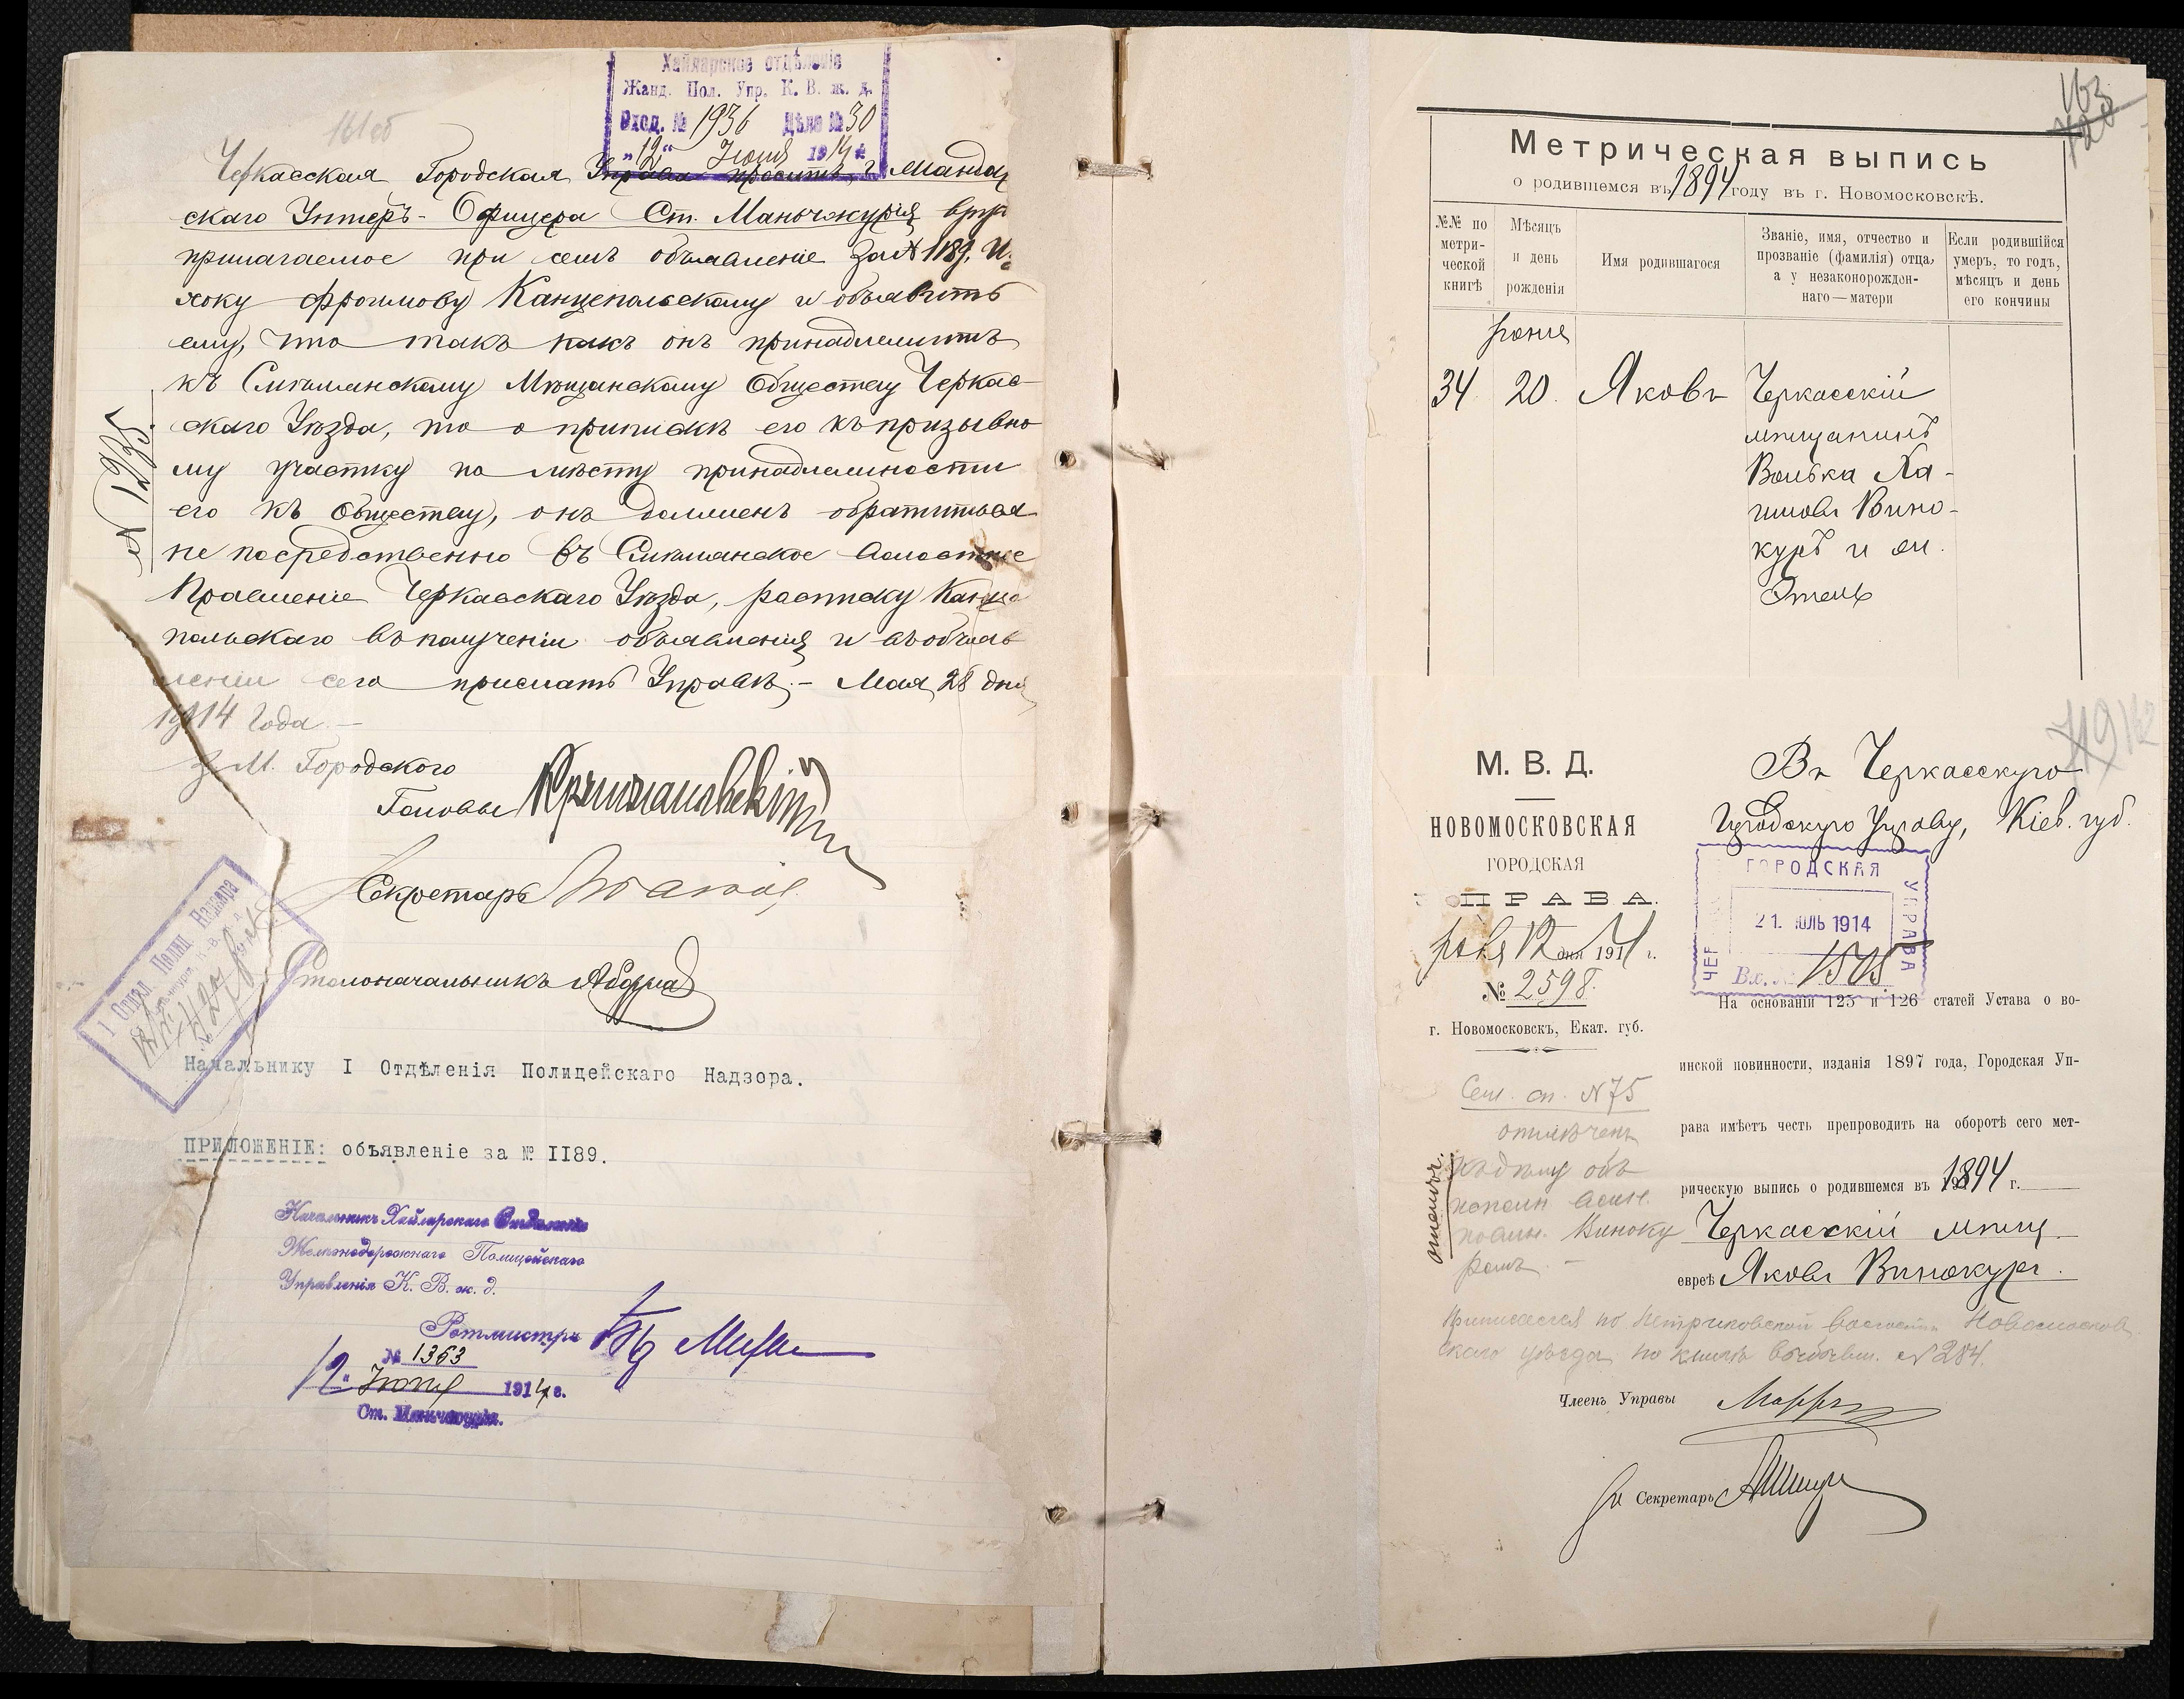 161 об
Хайларское отдѣленіе
Жанд. Пол. Упр. К. В. ж. д.
Вход. № 1936 Дѣло № 30
„12“ Іюня 1914 г.
Черкасская Городская Управа проситъ г. Жандар
скаго Унтеръ-Офицера Ст. Маньчжурія вруч
прилагаемое при семъ объявленіе за № 1189, И
хоку Фроимову Канцепольскому и объявить
ему, что такъ какъ онъ принадлежитъ
къ Смѣлянскому Мѣщанскому Обществу Черкас-
скаго Уѣзда, то о припискѣ его къ призывно
му участку по мѣсту принадлежности
его къ обществу, онъ долженъ обратиться
не посредственно въ Смѣлянское Волостное
Правленіе Черкасскаго Уѣзда, расписку Канце
польскаго въ полученіи объявленія и въ объяв
леніи сего прислать Управѣ.- Мая 28 дня
1914 года.-
№ 1295.
З.М. Городского
Головы
Секретарь
Столоначальникъ
I Отдѣл. Полиц. Надзора
Начальнику I Отдѣленія Полицейскаго Надзора.
ПРИЛОЖЕНІЕ: объявленіе за № II89.
Начальникъ Хайларскаго Отдѣленія
Желѣзнодорожнаго Полицейскаго
Управленія К. В. ж. д.
Ротмистръ
№ 1363
12 „ Іюня 1914 г.
Ст. Маньчжурія.
163
720
Метрическая выпись
о родившемся въ 1894 году въ г. Новомосковскѣ.
№№ по метри- ческой книгѣ
Мѣсяцъ и день рожденія
Имя родившагося
Званіе, имя, отчество и прозваніе (фамилія) отца, а у незаконорожден- наго—матери
Если родившійся умеръ, то годъ, мѣсяцъ и день его кончины
34
20.
Яковъ
Черкасскій
мѣщанинъ
Волька Ха-
имовъ Вино-
куръ и
719
162
М. В. Д.
НОВОМОСКОВСКАЯ
ГОРОДСКАЯ
УПРАВА.
12 дня 1914 г.
№ 2598.
г. Новомосковскъ, Екат. губ.
Сем. сп. № 75
отмѣченъ
Въ Черкасскую
Городскую Управу, Кіев. губ.
ГОРОДСКАЯ
УПРАВА
ЧЕР
21. ІЮЛЬ 1914
Вх. № 1505
На основаніи 125 и 126 статей Устава о во-
инской повинности, изданія 1897 года, Городская Уп-
рава имѣетъ честь препроводить на оборотѣ сего мет-
рическую выпись о родившемся въ 1894 г.
Черкасскій мѣщ.
евреѣ Яковъ Винокуръ.
Приписался по Петриковской волости Новомосков
скаго уѣзда по книгѣ № 284.
Членъ Управы
За Секретарь